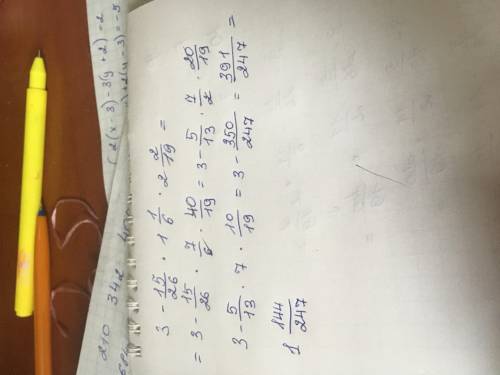 3 - 15/26 · 1 1/6 · 2 2/19 =
= 3 - 15/26 · 7/6 · 40/19 = 3 - 5/13 · 7/2 · 20/19
3 - 5/13 · 7 · 10/19 = 3 - 350/247 = 391/247 =
1 144/247
210 342
(2(x-3)-3(y+2)=2